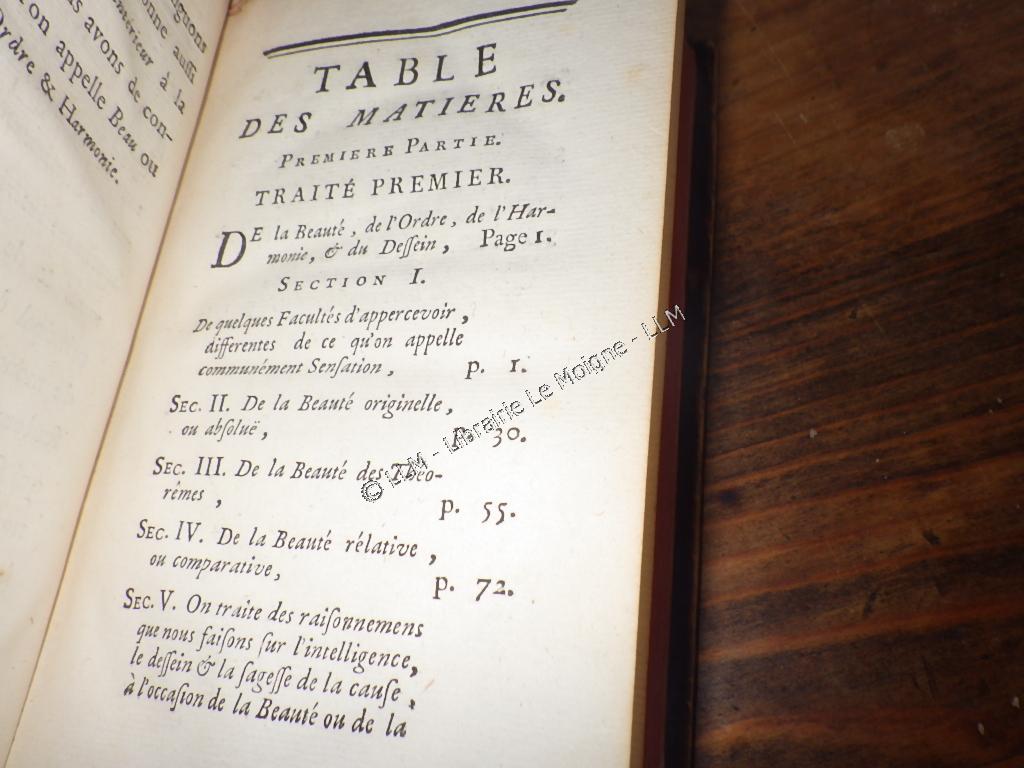 ignons
onne aussi
érieur à la
s avons de con-
on appelle Beau ou
Ordre & Harmonie.
TABLE
DES MATIERES.
PREMIERE PARTIE.
TRAITÉ PREMIER.
DE la Beauté, de l'Ordre, de l'Har-
monie, & du Deſſein, Page 1.
SECTION I.
De quelques Facultés d'appercevoir,
differentes de ce qu'on appelle
communément Senſation, p. 1.
SEC. II. De la Beauté originelle,
ou absoluë, p. 30.
SEC. III. De la Beauté des Théo-
rêmes, p. 55.
SEC. IV. De la Beauté rélative,
ou comparative, p. 72.
SEC. V. On traite des raiſonnemens
que nous faiſons ſur l'intelligence,
le deſſein & la ſageſſe de la cauſe,
à l'occaſion de la Beauté ou de la
© LLM - Librairie Le Moigne - LLM